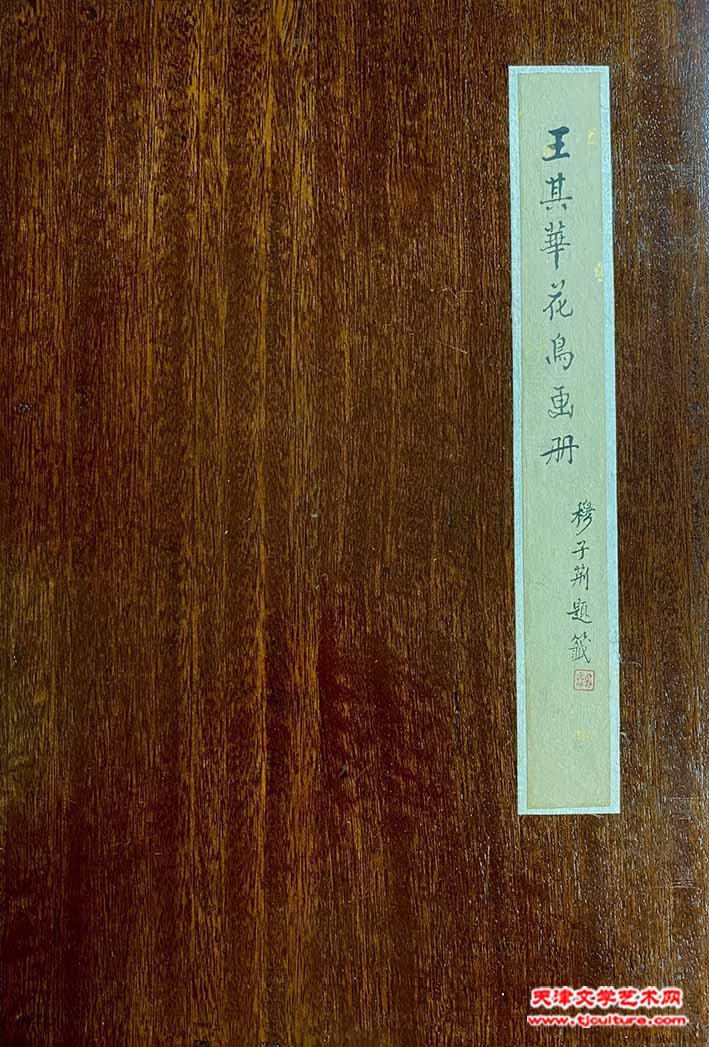 王其華花鳥畫册
穆子荊題籤
天津文学艺术网
www.tjculture.com